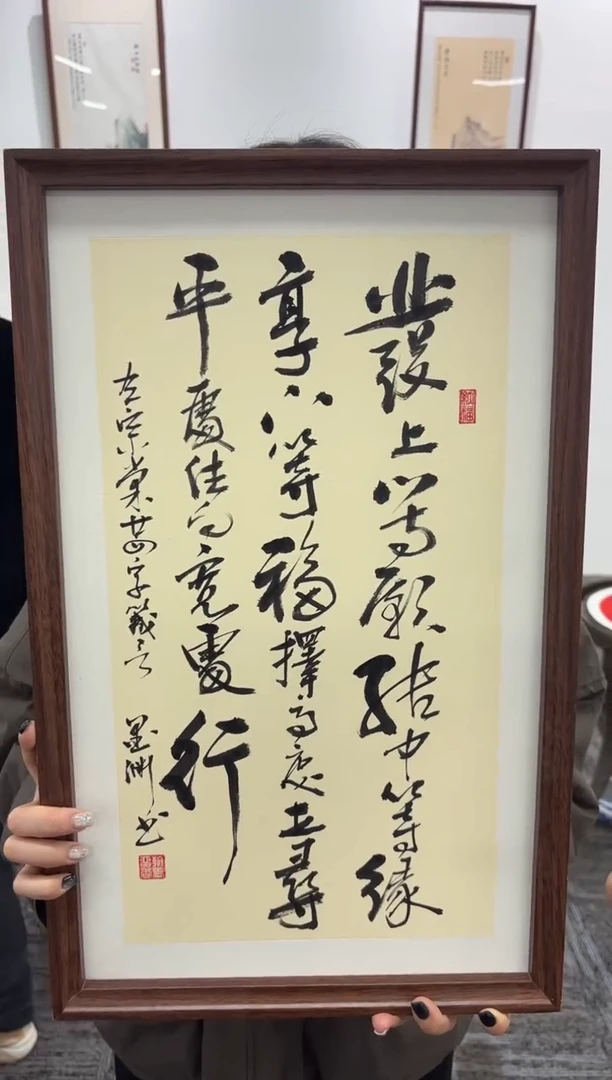 發上等願結中等緣
享下等福擇高處立尋
平處住向寬處行
左宗棠廿四字箴言
墨渊书